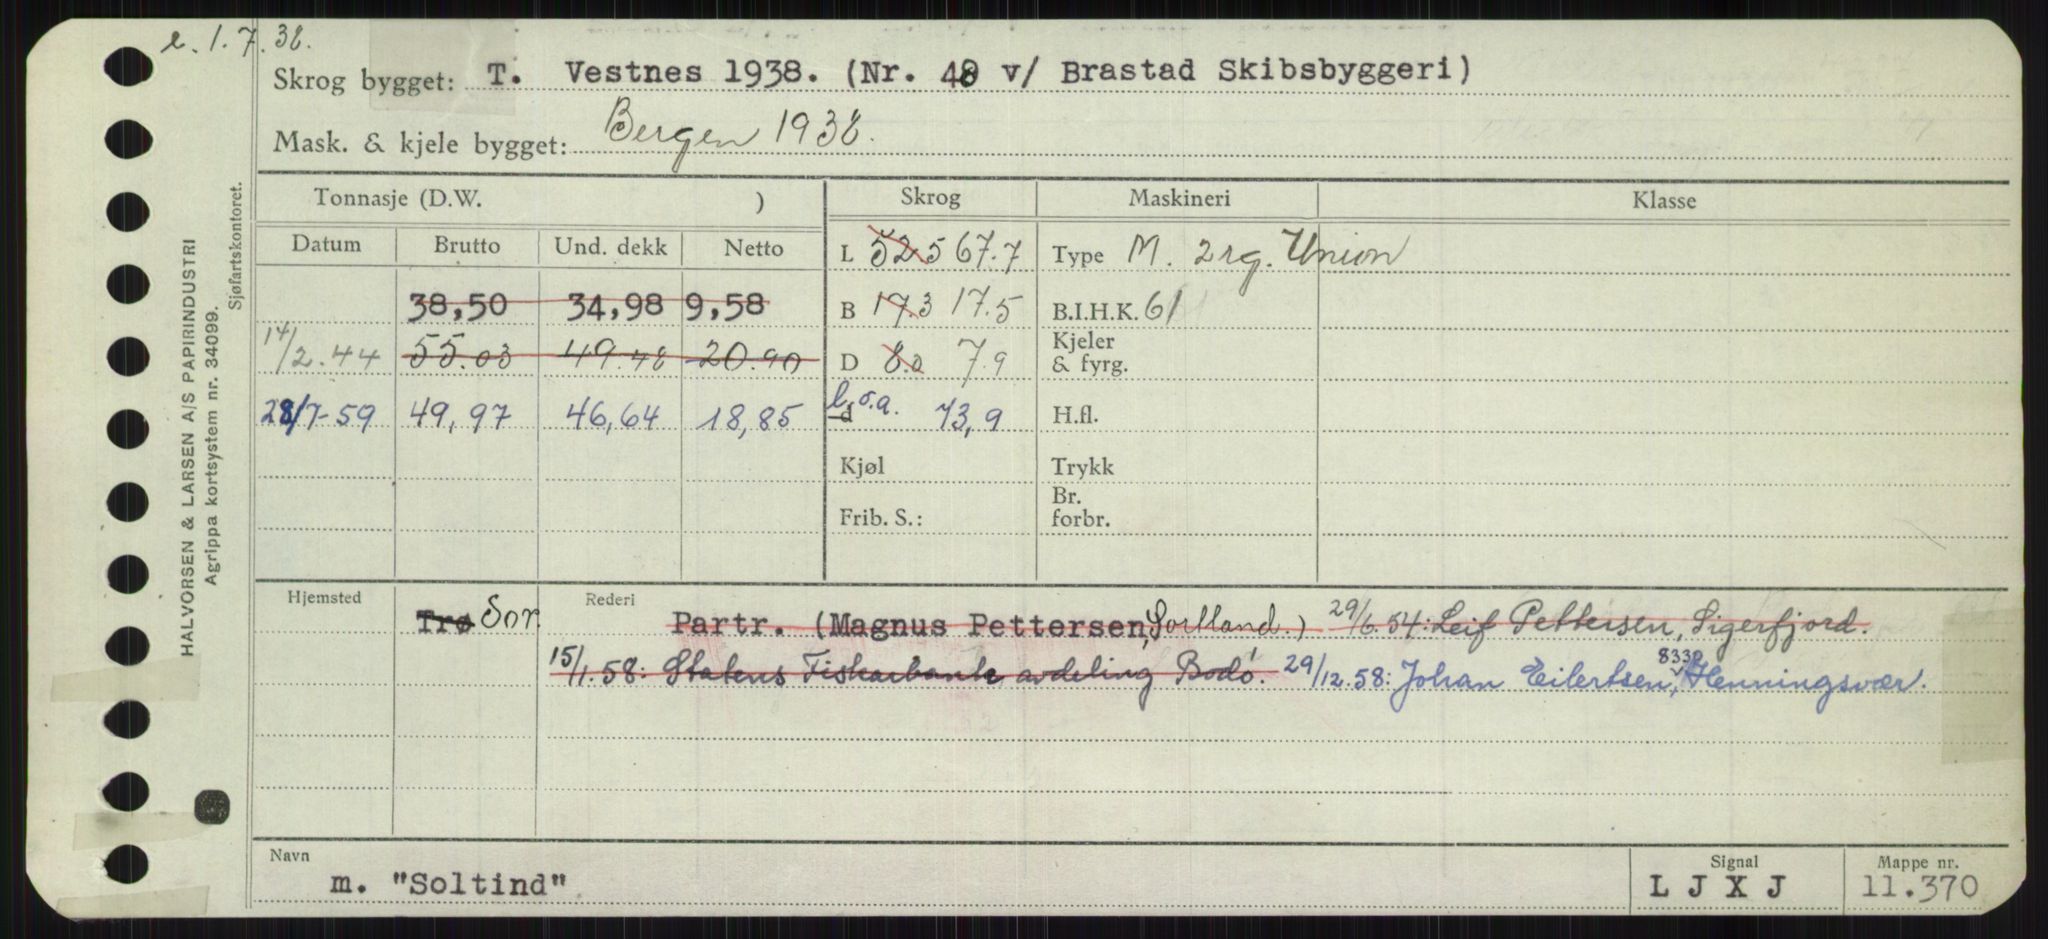 e. 1.7.38.
Skrog bygget: T. Vestnes 1938. (Nr. 48 v/ Brastad Skibsbyggeri)
Mask. & kjele bygget: Bergen 1938.
Tonnasje (D.W. ) Skrog Maskineri Klasse
Datum Brutto Und. dekk Netto L 52.5 67.7 Type M. 2 rg. Union
38,50 34,98 9,58 B 17.3 17.5 B.I.H.K. 61
14/2.44 55.03 49.48 20.90 D 8.0 7.9 Kjeler & fyrg.
28/7-59 49,97 46,64 18,85 d l.o.a. 73,9 H.fl.
Kjøl Trykk
Frib. S.: Br. forbr.
Hjemsted Trø Sor. Rederi Partr. (Magnus Pettersen, Sortland.) 29/6.54: Leif Pettersen, Sigerfjord.
15/1.58: Statens Fiskarbank avdeling Bodø. 29/12.58: Johan Eilertsen, 8330 Henningsvær.
Navn Signal Mappe nr.
m. "Soltind" LJXJ 11.370
HALVORSEN & LARSEN A/S PAPIRINDUSTRI
Agrippa kortsystem nr. 34099.
Sjøfartskontoret.